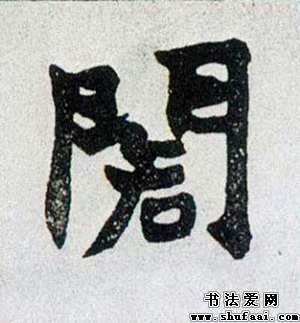 閣
书法爱网
www.shufaai.com